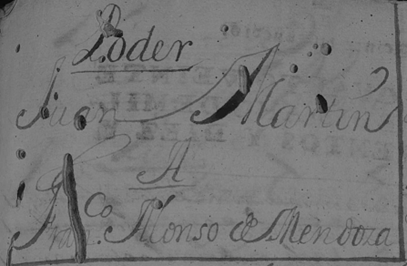 Poder
Juan Martin
A
Fran.co Alonso de Mendoza